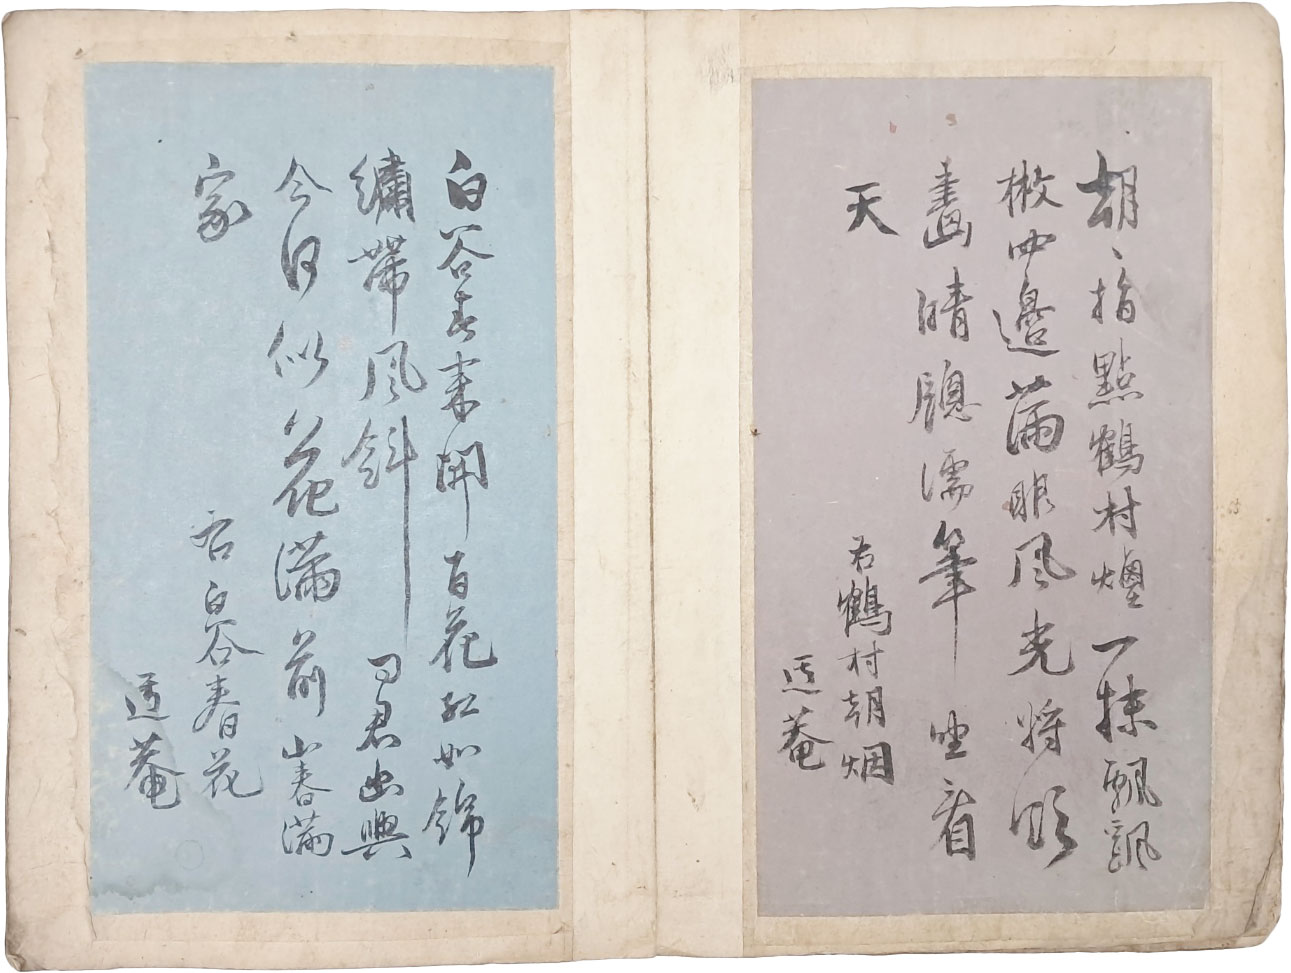 朝〻指點鶴村煙一抹飄颻
散四邊滿眼風光將欲
畫晴牕濡筆坐看
天
右鶴村朝烟
菴
白谷春來開百花紅如錦
繡帶風斜問君幽興
今日似花滿前山春滿
家
右白谷春花
菴